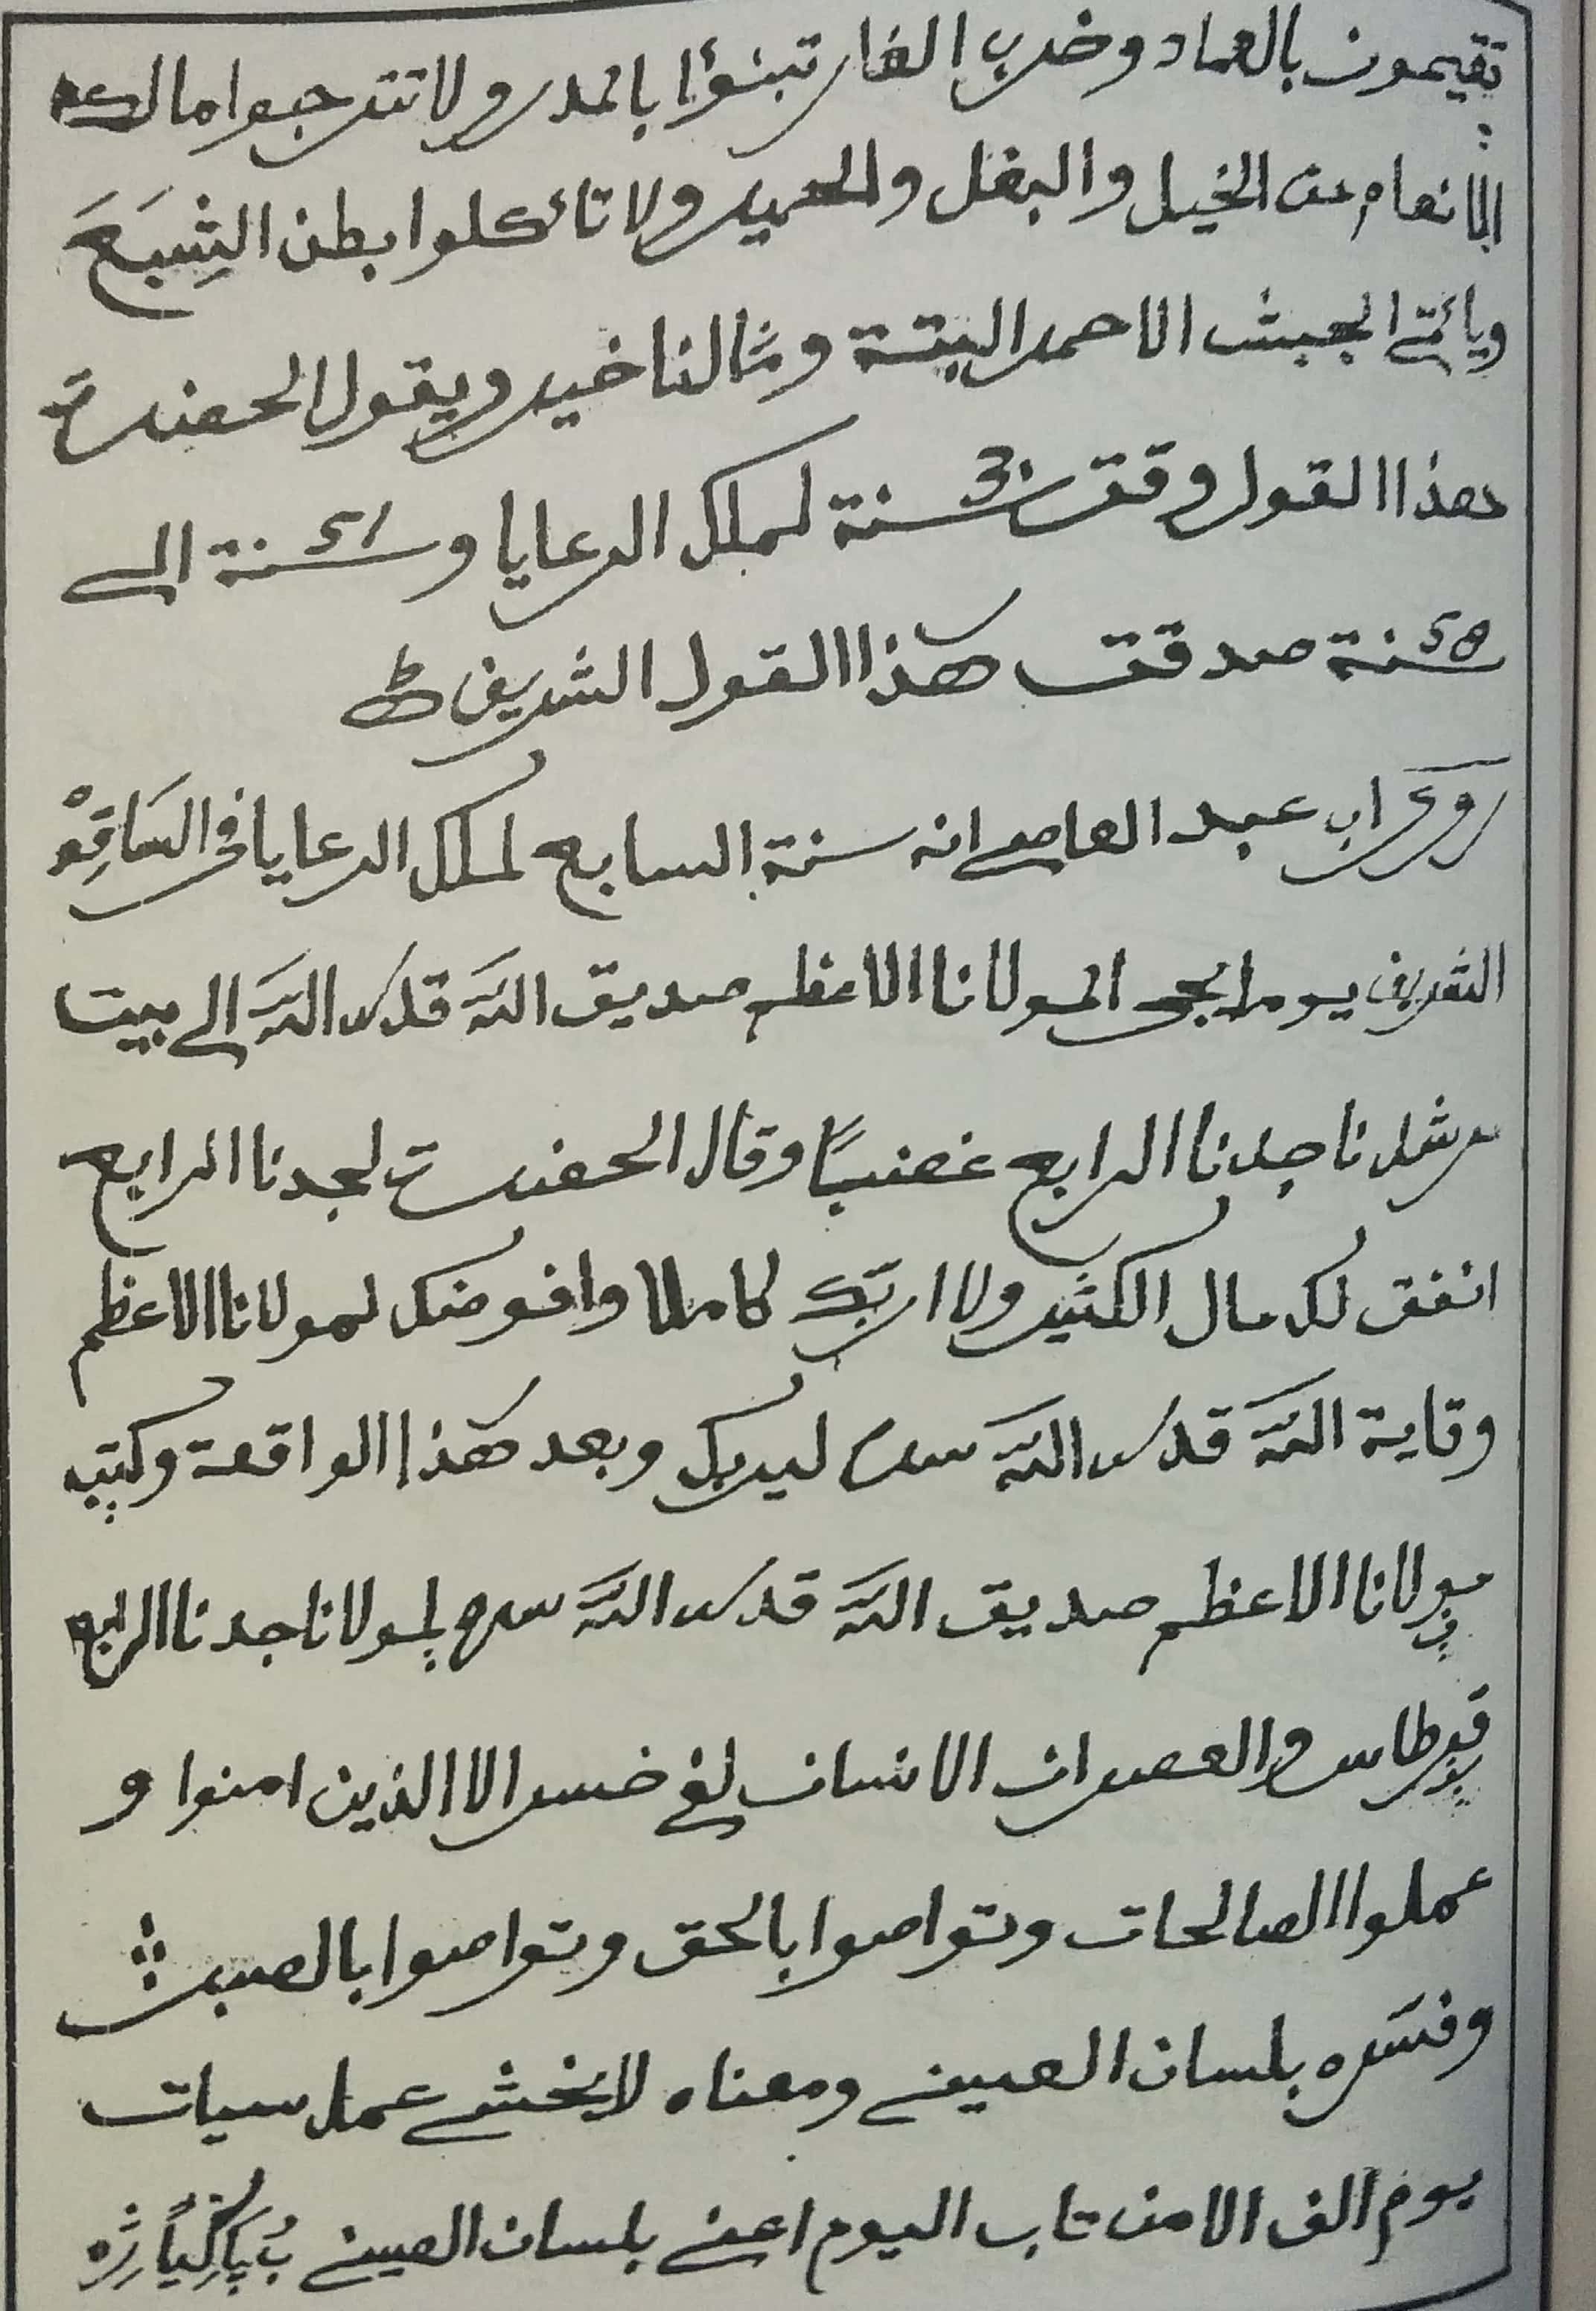 تقيمون بالعماد وخرب الغار تبنؤا بالمدر ولا تترجبوا مالكم
الانعام من الخيل والبغل والحمير ولا تائكلوا بطن الشِبَعَ
ويائتى الجبش الاحمر البتة ومالنا خير ويقول الحضرة
هذا القول وقت 31 سنة لملك الرعايا و 51 سنة الى
58 سنة صدقت هذا القول الشريف ط
روى اب عبد العاصى انه سنة السابع لملك الرعايا فى السَاقِهْ
الشريف يوما يجى المولانا الاعظم صديق اللّه قدس اللّه الى بيت
مرشدنا جدنا الرابع غضبًا وقال الحضرت لجدنا الرابع
انفق لك مال الكثير ولا اربّك كاملا وافوضك لمولانا الاعظم
وقاية اللّه قدس اللّه سره ليربك وبعد هذا الواقعة وكتب
مولانا الاعظم صديق اللّه قدس اللّه سره لمولانا جدنا الرابع
قرطاس والعصر ان الانسان لفى خسر الا الذين امنوا و
عملوا الصالحات وتواصوا بالحق وتواصوا بالصبر
وفسّره بلسان الصينى ومعناه لا يخشى عمل سيات
يوم الف الا من تاب اليوم اعنى بلسان الصينى